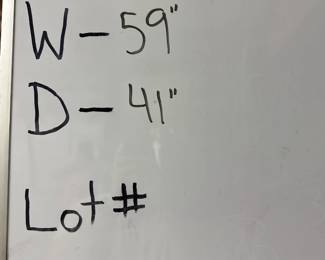 W - 59"
D - 41"
Lot #